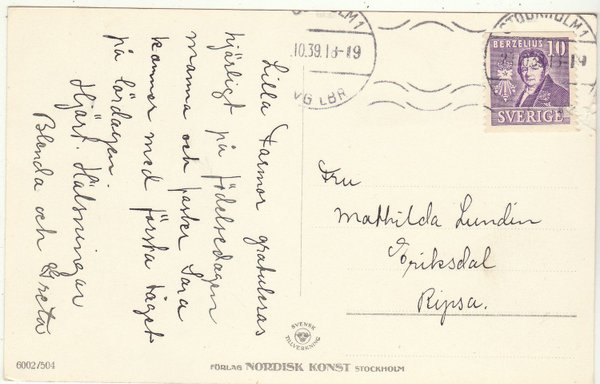 STOCKHOLM 1
.10.39.18-19
AVG LBR
STOCKHOLM 1
BERZELIUS 10
SVERIGE
Lilla Farmor gratuleras
hjärtligt på födelsedagen
mamma och faster Sara
kommer med första tåget
på lördagen.
Hjärt. Hälsningar
Blenda och Greta
Fru
Mathilda Lundin
Eriksdal
Ripsa.
SVENSK
TILLVERKNING
6002/504
FÖRLAG NORDISK KONST STOCKHOLM